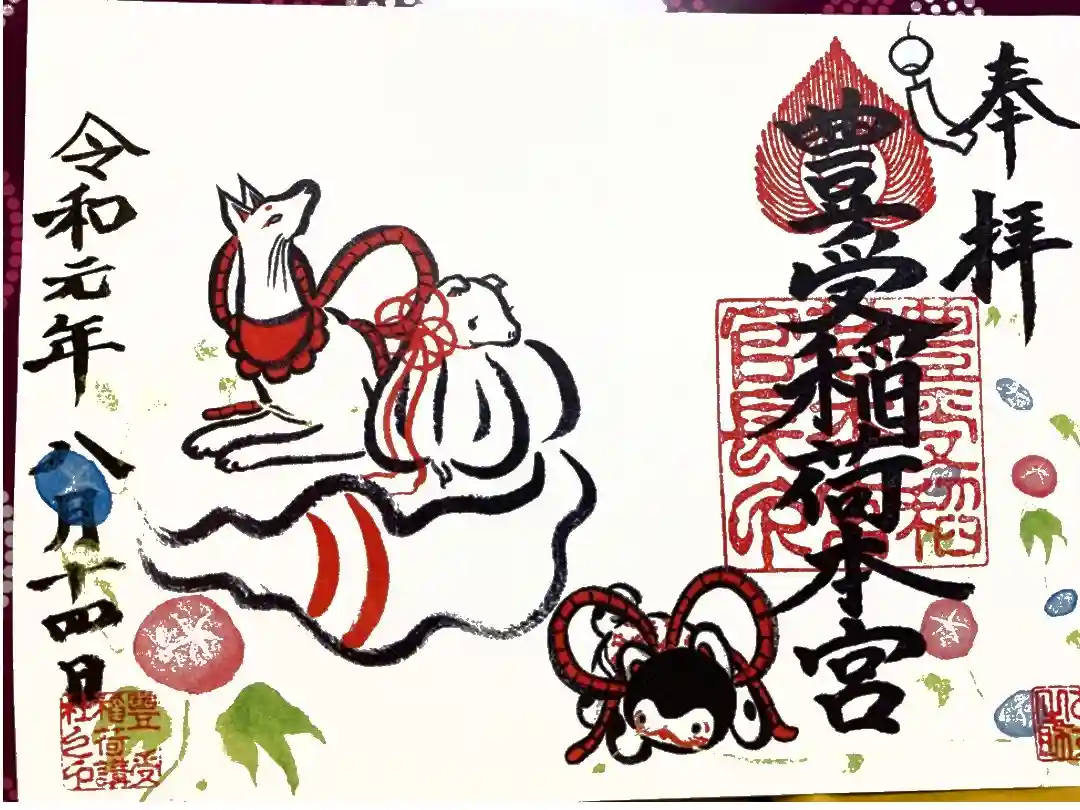 奉拝
豊受稲荷本宮
令和元年八月十四日
豊受
稲荷講
社之印